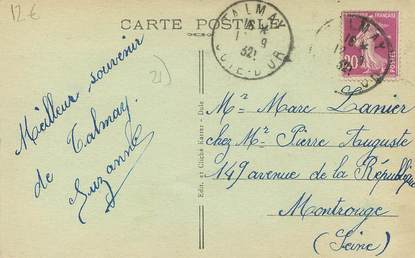 12 €
CARTE POSTALE
TALMAY
16 *
9
32
COTE-D'OR
21)
Meilleur souvenir
de Talmay.
Suzanne
Edit. et Cliché Karrer - Dole
Mr Marc Lanier
chez Mr Pierre Auguste
149 avenue de la République
Montrouge
(Seine)